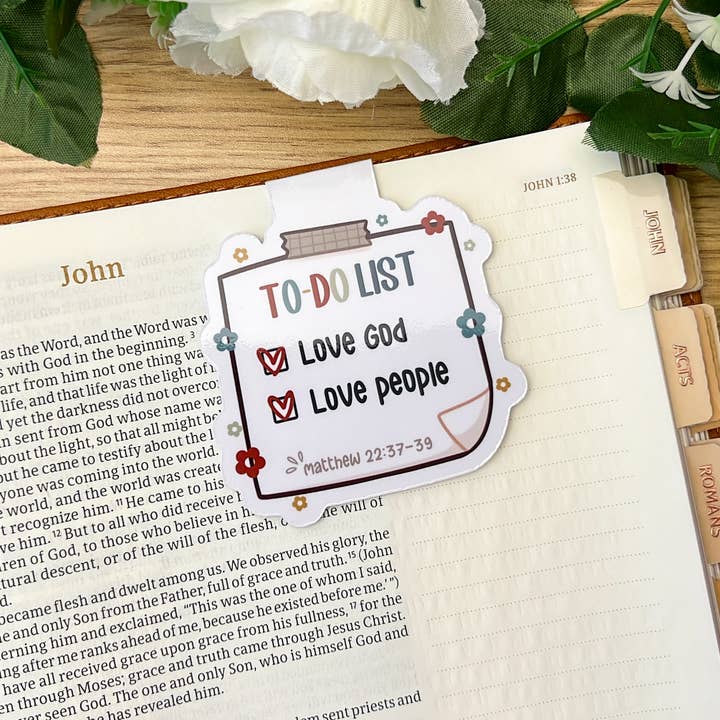 JOHN 1:38
John
TO-DO LIST
LOVE GOD
LOVE PEOPLE
matthew 22:37-39
as the Word, and the Word was
s with God in the beginning. 3
art from him not one thing
life, and that life was the light of
d yet the darkness did not
n sent from God whose name
about the light, so that all might
but he came to testify about the
yone was coming into the world.
e world, and the world was
t recognize him. 11 He came to his
ve him. 12 But to all who did receive
ren of God, to those who believe in
tural descent, or of the will of the flesh, or of the will of
d.
became flesh and dwelt among us. We observed his glory, the
e and only Son from the Father, full of grace and truth. 15 (John
erning him and exclaimed, “This was the one of whom I said,
ing after me ranks ahead of me, because he existed before me.’”)
have all received grace upon grace from his fullness, 17 for the
en through Moses; grace and truth came through Jesus Christ.
ver seen God. The one and only Son, who is himself God and
he has revealed him.
sent priests and
JOHN
ACTS
ROMANS